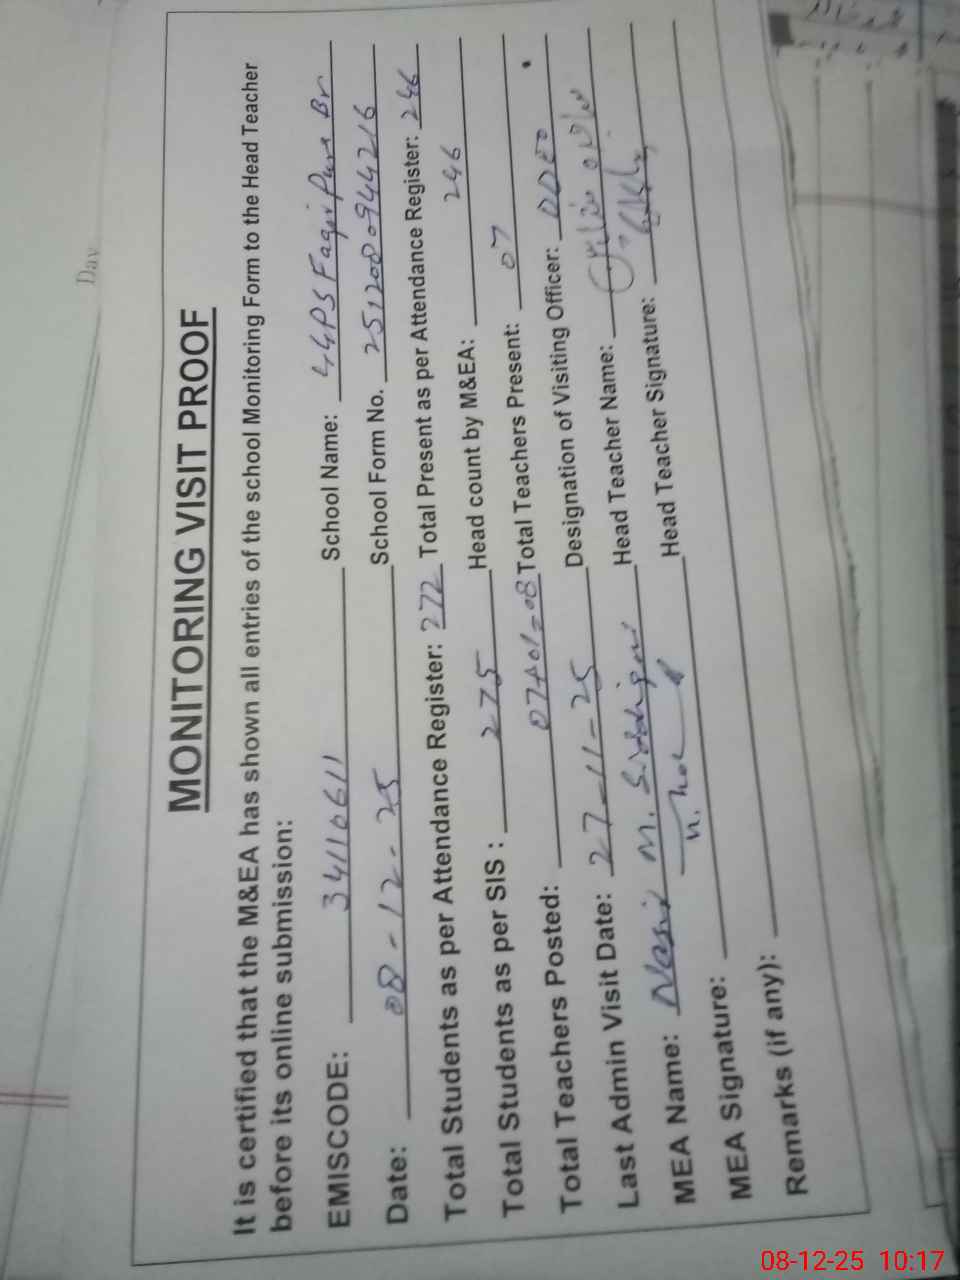 Day
MONITORING VISIT PROOF
It is certified that the M&EA has shown all entries of the school Monitoring Form to the Head Teacher
before its online submission:
EMISCODE: 34110611 School Name: GGPS Faqir Pura Br
Date: 08-12-25 School Form No. 2512080944216
Total Students as per Attendance Register: 272 Total Present as per Attendance Register: 246
Total Students as per SIS : 275 Head count by M&EA: 246
Total Teachers Posted: 07+01=08 Total Teachers Present: 07
Last Admin Visit Date: 27-11-25 Designation of Visiting Officer:
MEA Name: Nasir M. Siddiqui Head Teacher Name:
MEA Signature: Head Teacher Signature:
Remarks (if any):
08-12-25 10:17